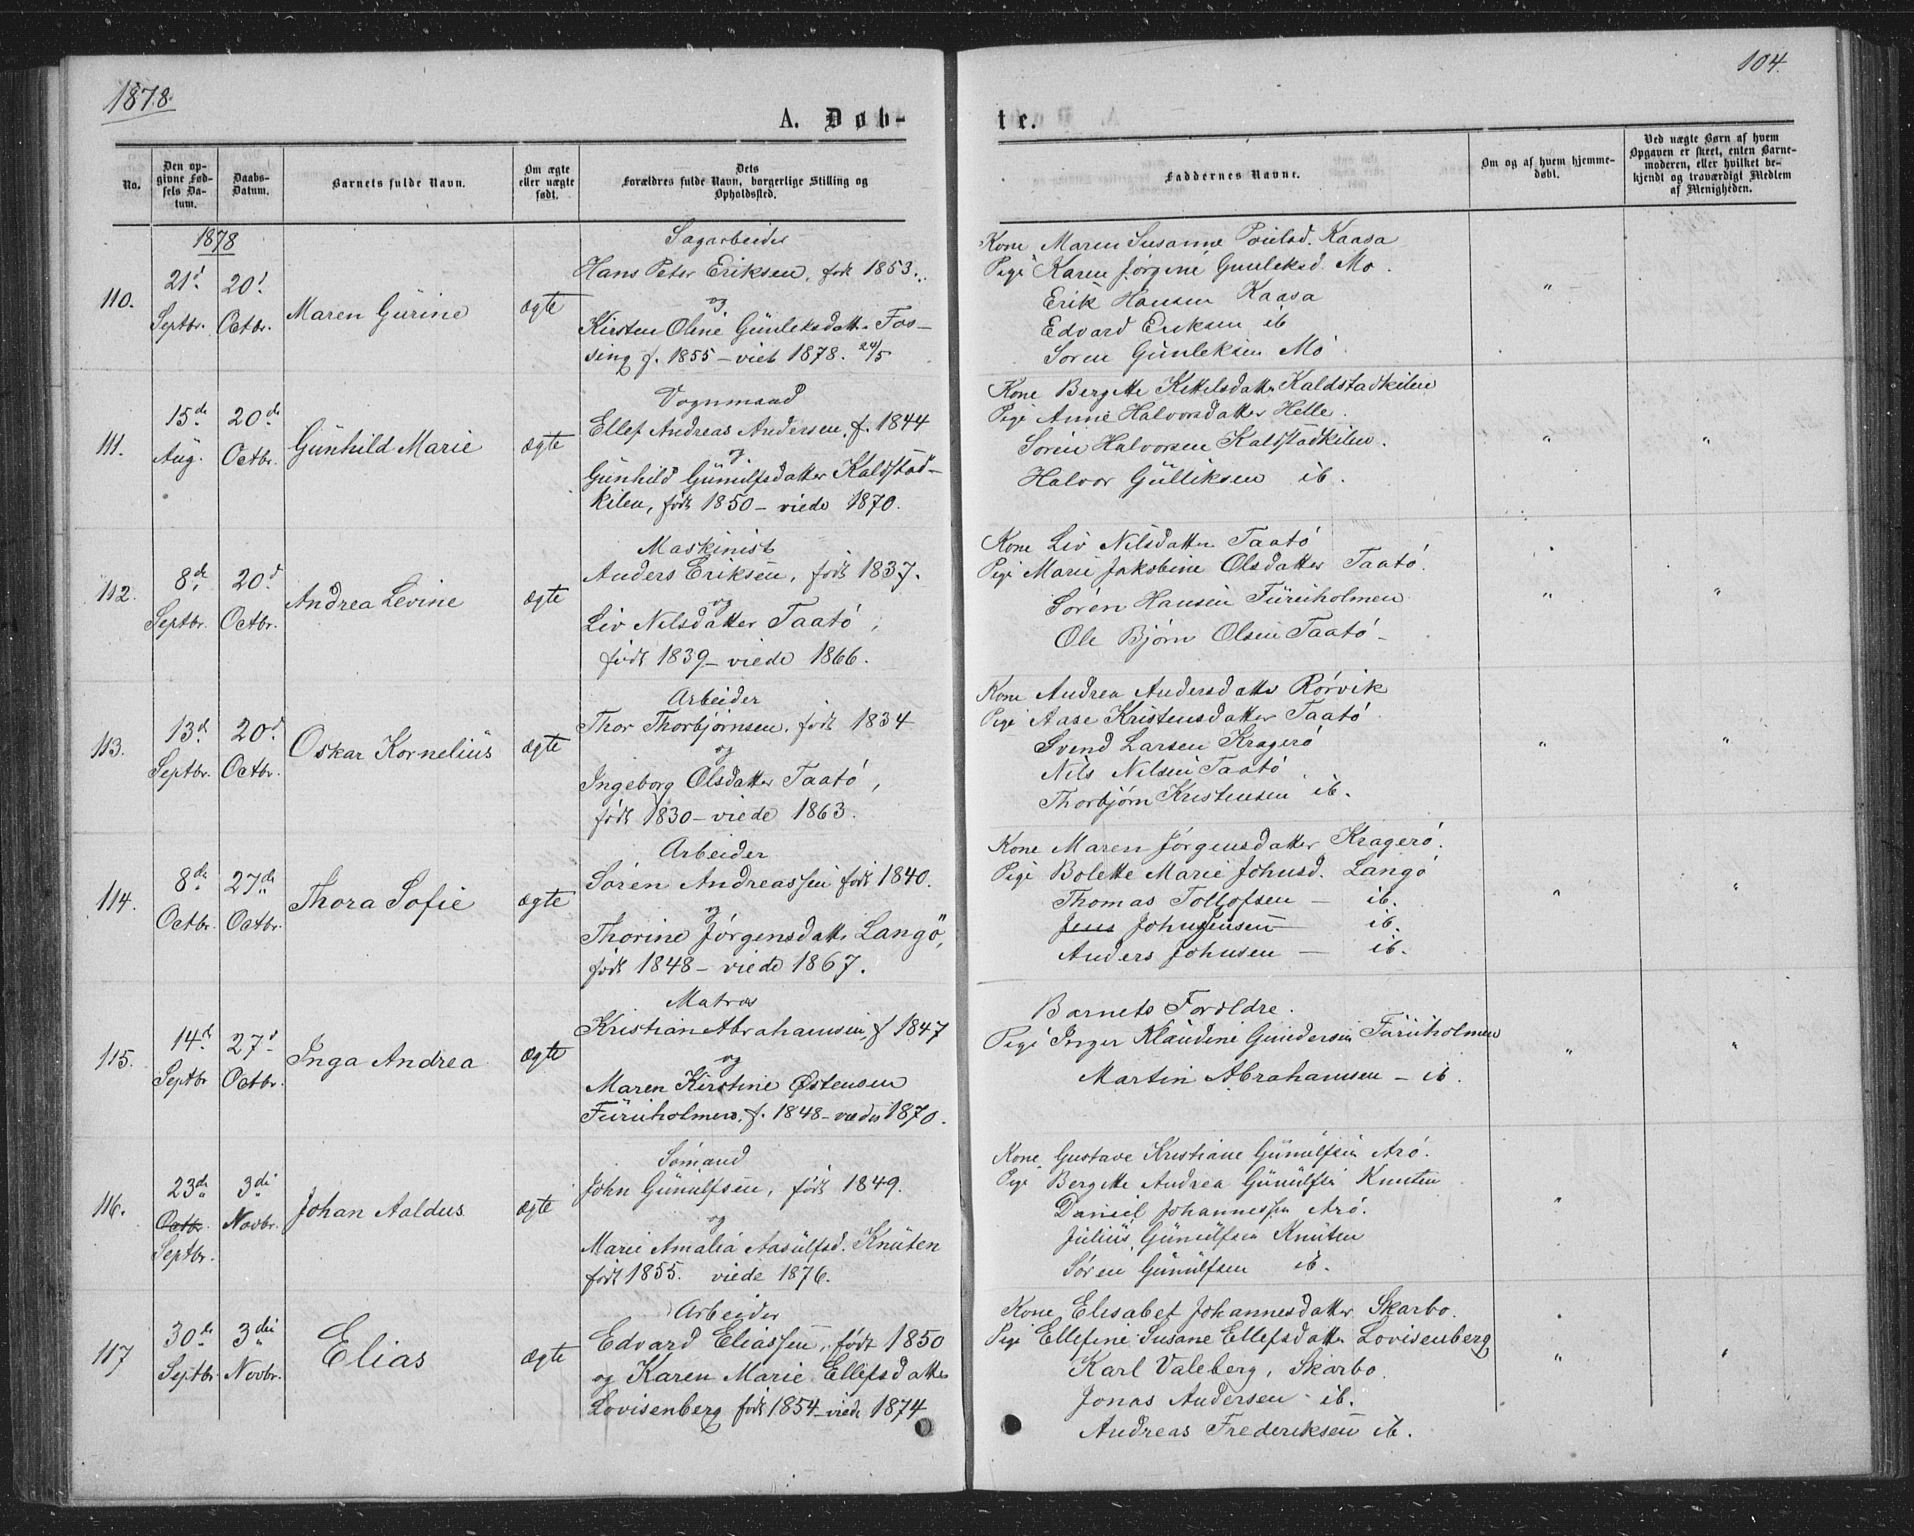 1878.
104.
A. Døb-
te.
No.
Den op-
givne Fød-
sels Da-
tum.
Daabs-
Datum.
Barnets fulde Navn.
Om ægte
eller uægte
født.
Dets
Forældres fulde Navn, borgerlige Stilling og
Opholdssted.
Faddernes Navne.
Om og af hvem hjemme-
døbt.
Ved uægte Børn af hvem
Opgaven er skeet, enten Barne-
moderen, eller hvilket be-
kjendt og troværdigt Medlem
af Menigheden.
1878
110.
21d
Septbr.
20d
Octbr.
Maren Gurine
ægte
Sagarbeider
Hans Peter Eriksen, født 1853.
og
Kirsten Oline Gunleksdatt. Fos-
sing f. 1855 – viet 1878. 24/5
Kone Maren Susanne Poulsd. Kaasa
Pige Karen Jørgine Gunleksd. Mo.
Erik Hansen Kaasa
Edvard Eriksen ib
Søren Gunleksen Mo
"
111.
15de
Aug.
20de
Octbr.
Gunhild Marie
ægte
Vognmand
Ellef Andreas Andersen f. 1844
og
Gunhild Gunulfsdatter Kaldstad-
kilen, født 1850 – viede 1870.
Kone Bergitte Kittelsdatter Kaldstadkilen
Pige Anne Halvorsdatter Helle.
Søren Halvorsen Kalstadkilen.
Halvor Gulliksen ib.
" "
112.
8de
Septbr.
20d
Octbr.
Andrea Levine
ægte
Maskinist
Anders Eriksen, født 1837.
og
Liv Nilsdatter Taatø,
født 1839 – viede 1866.
Kone Liv Nilsdatter Taatø
Pige Marie Jakobine Olsdatter Taatø.
Søren Hansen Furuholmen
Ole Bjørn Olsen Taatø –
" "
113.
13d
Septbr.
20d
Octbr.
Oskar Kornelius
ægte
Arbeider
Thor Thorbjørnsen, født 1834
og
Ingeborg Olsdatter Taatø,
født 1830 – viede 1863.
Kone Andrea Andersdatter Rørvik
Pige Aase Kristensdatter Taatø
Svend Larsen Kragerø
Nils Nilsen Taatø
Thorbjørn Kristensen ib.
" "
114.
8de
Octbr.
27de
Octbr.
Thora Sofie
ægte
Arbeider
Søren Andreassen født 1840.
og
Thorine Jørgensdatt. Langø,
født 1848 – viede 1867.
Kone Maren Jørgensdatter Kragerø.
Pige Bolette Marie Johnsd. Langø
Thomas Tollofsen – ib.
Jens John Jensen ib.
Anders Johnsen – ib.
" "
115.
14d
Septbr
27d
Octbr.
Inga Andrea
ægte
Matros
Kristian Abrahamsen, f 1847
og
Maren Kirstine Østensen
Furuholmen, f. 1848 – viede 1870.
Barnets Forældre.
Pige Inger Klaudine Gundersen Furuholmen
Martin Abrahamsen – ib.
" "
116.
23de
Octbr.
Septbr.
3die
Novbr.
Johan Aaldus
ægte
Sømand
John Gunulfsen, født 1849.
og
Marie Amalia Aasulfsd. Knuten
født 1855. viede 1876.
Kone Gustave Kristiane Gunulfsen Arø.
Pige Bergitte Andrea Gunulfsen Knuten
Daniel Johannessen Arø.
Julius Gunulfsen Knuten
Søren Gunulfsen ib.
"
117
30de
Septbr
3die
Novbr.
Elias
ægte
Arbeider
Edvard Eliassen, født 1850
og Karen Marie Ellefsdatter
Lovisenberg født 1854 – viede 1874
Kone Elisabet Johannesdatter Skarbo.
Pige Ellefine Susane Ellefsdatter Lovisenberg
Karl Valeberg, Skarbo.
Jonas Andersen – ib.
Andreas Frederiksen ib.
" "